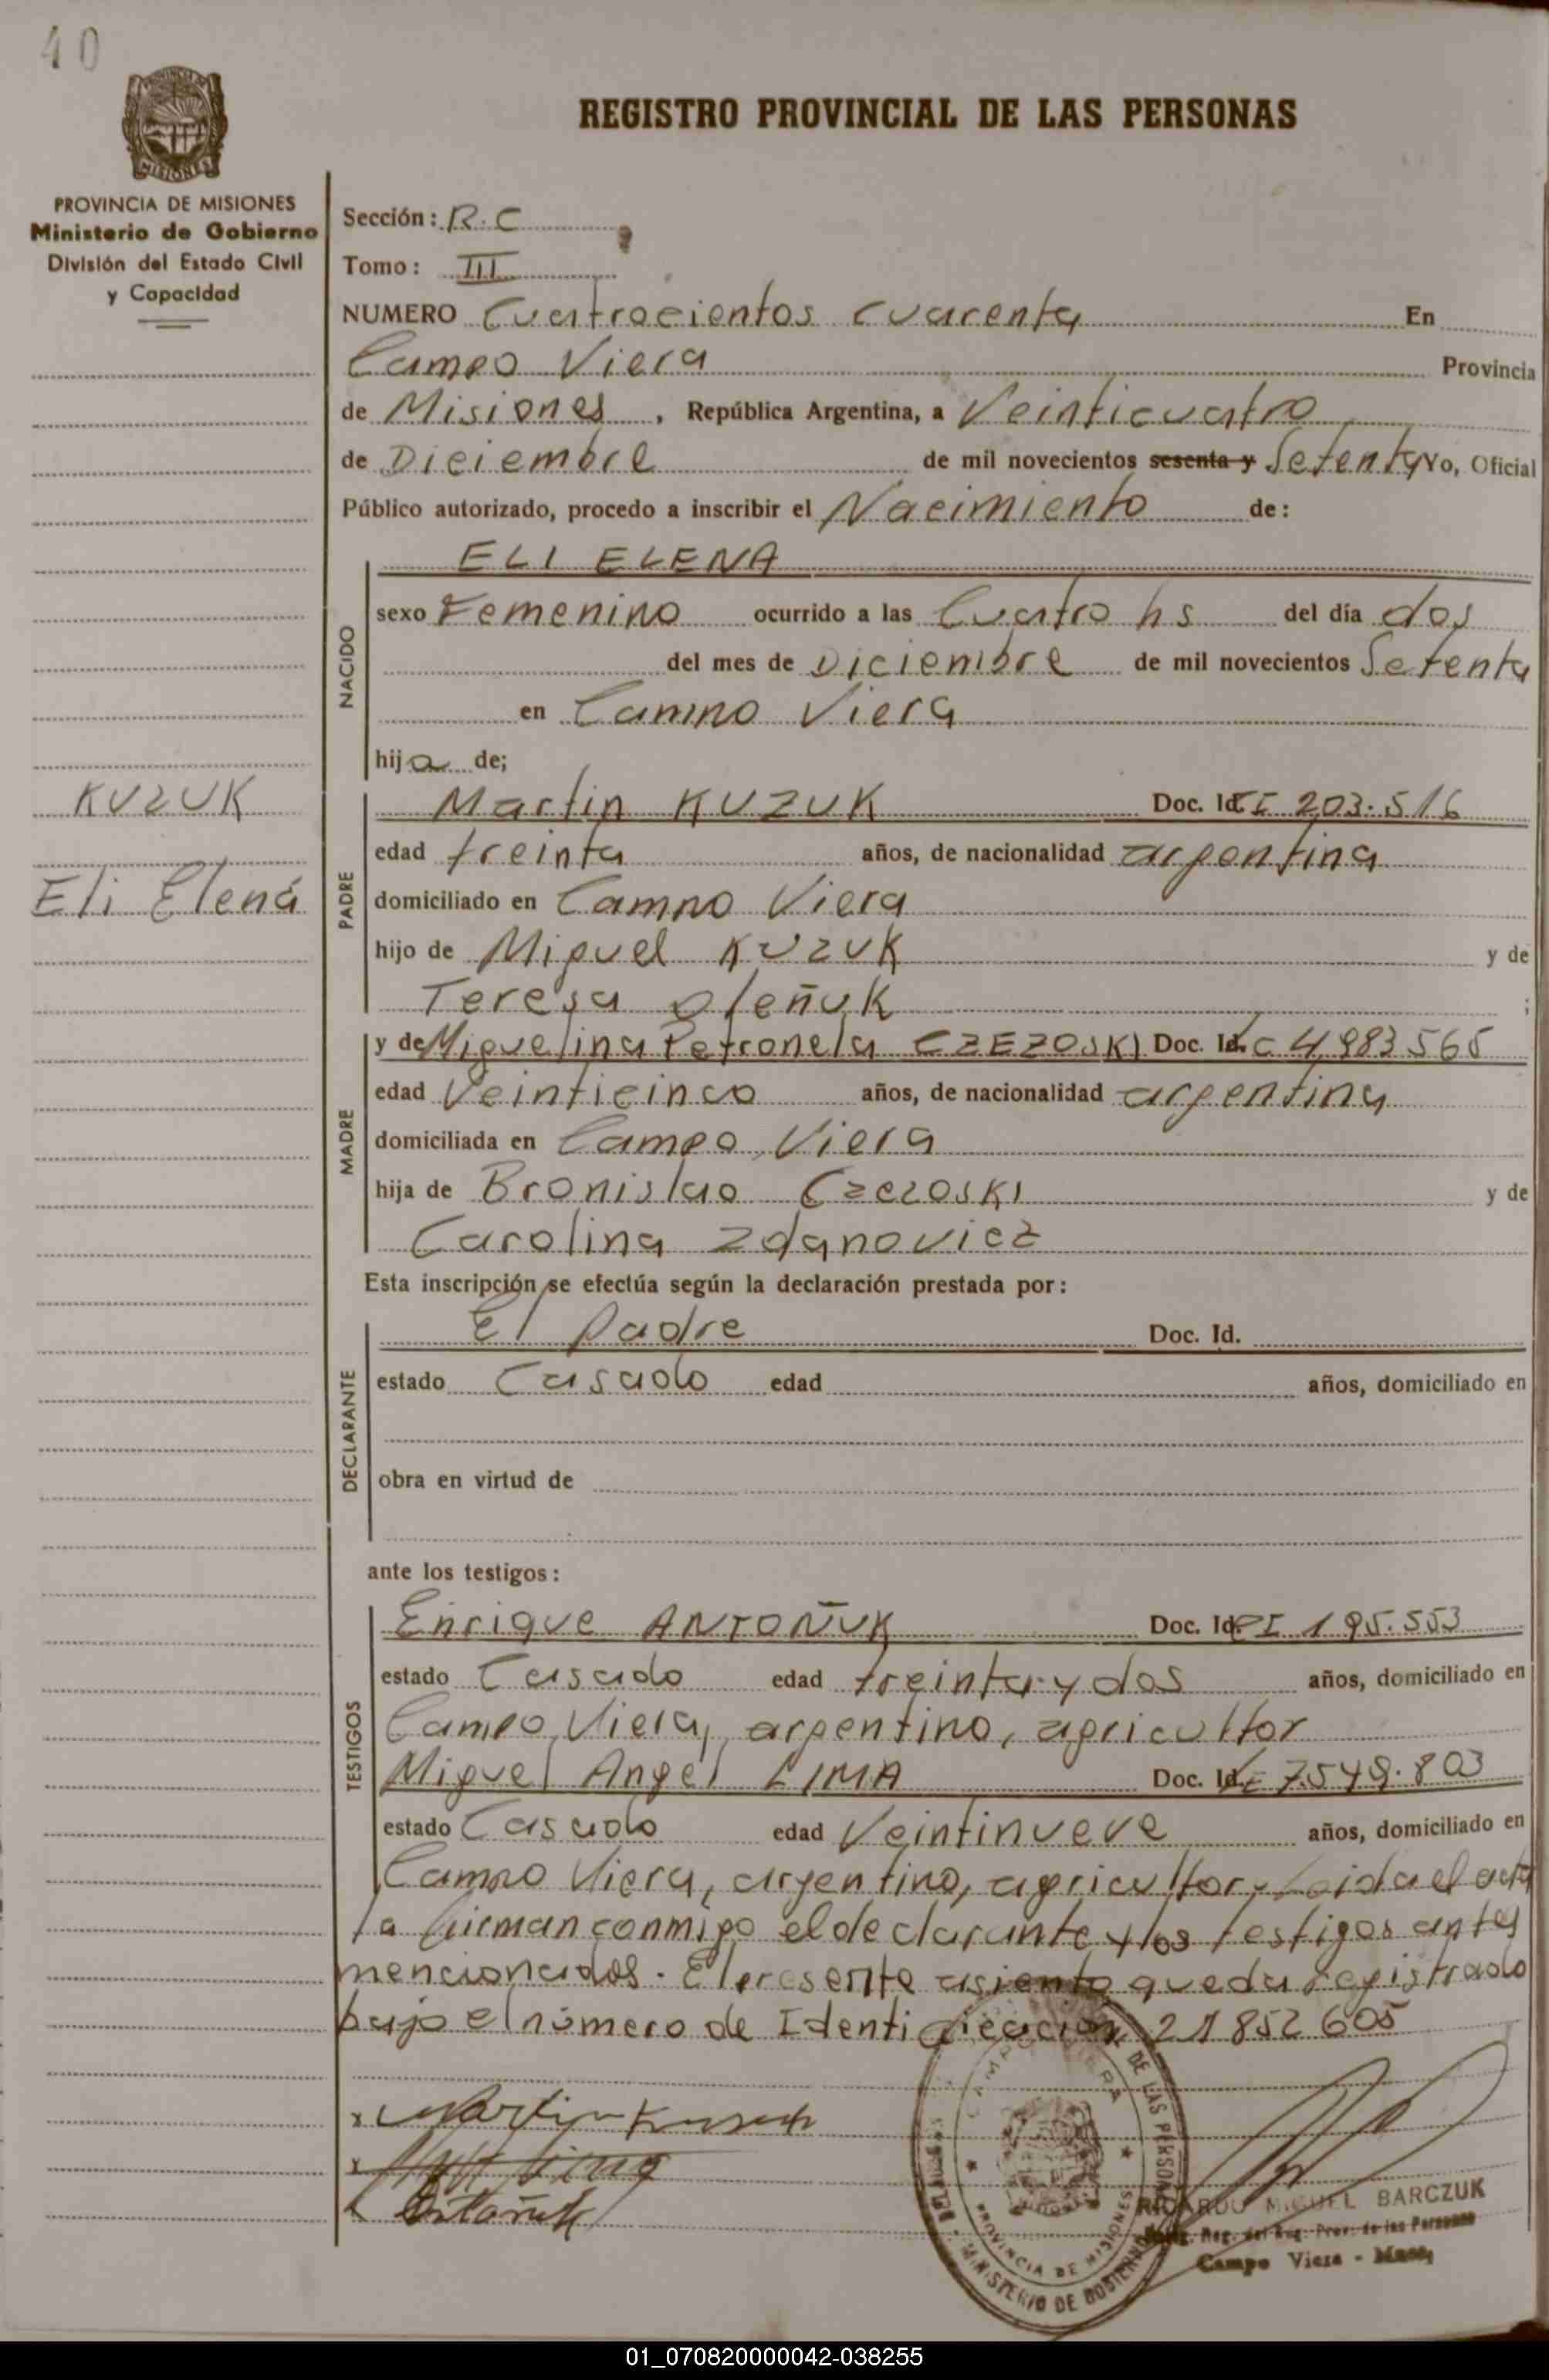 40
MISIONES
REGISTRO PROVINCIAL DE LAS PERSONAS
PROVINCIA DE MISIONES
Ministerio de Gobierno
División del Estado Civil
y Capacidad
KUZUK
Eli Elena
Sección: R.C
Tomo: III
NUMERO Cuatrocientos cuarenta En
Campo Viera Provincia
de Misiones, República Argentina, a Veinticuatro
de Diciembre de mil novecientos sesenta y Setenta Yo, Oficial
Público autorizado, procedo a inscribir el Nacimiento de:
NACIDO
ELI ELENA
sexo Femenino ocurrido a las Cuatro hs del día dos
del mes de Diciembre de mil novecientos Setenta
en Campo Viera
hija de;
PADRE
Martin KUZUK Doc. Id. CI 203.516
edad treinta años, de nacionalidad argentina
domiciliado en Campo Viera
hijo de Miguel KUZUK y de
Teresa Oleñuk ;
MADRE
y de Miguelina Petronela CZEZOSKI Doc. Id. LC 4983565
edad Veinticinco años, de nacionalidad argentina
domiciliada en Campo Viera
hija de Bronislao Czezoski y de
Carolina Zdanovicz
Esta inscripción se efectúa según la declaración prestada por:
DECLARANTE
El Padre Doc. Id.
estado Casado edad años, domiciliado en
obra en virtud de
ante los testigos:
TESTIGOS
Enrique ANTOÑUK Doc. Id. CI 195.553
estado Casado edad treinta y dos años, domiciliado en
Campo Viera, argentino, agricultor
Miguel Angel LIMA Doc. Id. LE 7.549.803
estado Casado edad Veintinueve años, domiciliado en
Campo Viera, argentino, agricultor, Leida el acta
la firman conmigo el declarante y los testigos antes
mencionados. El presente asiento queda registrado
bajo el número de Identificación 21852605
x Martin Kuzuk
x
x Antoñuk
CAMPO VIERA
DE LAS PERSONAS
PROVINCIA DE MISIONES
MINISTERIO DE GOBIERNO
RICARDO MIGUEL BARCZUK
Reg. del Reg. Prov. de las Personas
Campo Viera - Mnes.
01_070820000042-038255